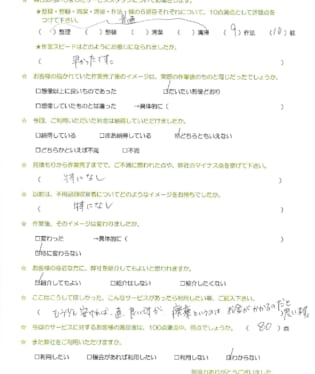 ★整理・整頓・清潔・作法・躾の5項目それぞれについて、10点満点として評価点を
つけて下さい。
普通
( ) 整理 ( ) 整頓 ( ) 清潔 ( ) 清掃 ( 9 ) 作法 ( 10 ) 躾
★作業スピードはどのようにお感じになられましたか。
( 早かったです。 )
☆ お客様の描かれていた作業完了後のイメージは、実際の作業後のものと同じだったでしょうか。
□想像以上に良いものであった □だいたい想像どおり
□想像していたものとは違った →具体的に( )
☆ 今回、ご利用いただいた料金は納得していただけましたか。
□納得している □まあ納得している □どちらともいえない
□どちらかといえば不満 □不満
☆ 見積もりから作業完了までで、ご不満に思われた点や、弊社のマイナス点を挙げて下さい。
( 特になし )
☆ 以前は、不用品回収業者についてどのようなイメージをお持ちでしたか。
( 特になし )
☆ 作業後、そのイメージは変わりましたか。
□変わった →具体的に( )
□特に変わらない
☆ お客様の身近な方に、弊社を紹介してもよいと思われますか。
□紹介してもよい □紹介はしない □紹介したくない
☆ ここはこうして欲しかった、こんなサービスがあったら利用したい等、ご記入下さい。
( もう少し安ければ、
お金がかかるのだと思います。
☆ 今回のサービスに対するお客様の満足度は、100点満点中、何点でしょうか。 ( 80 ) 点
☆ また弊社をご利用いただけますか。
□利用したい □機会があれば利用したい □利用しない □わからない
ご協力ありがとうございました